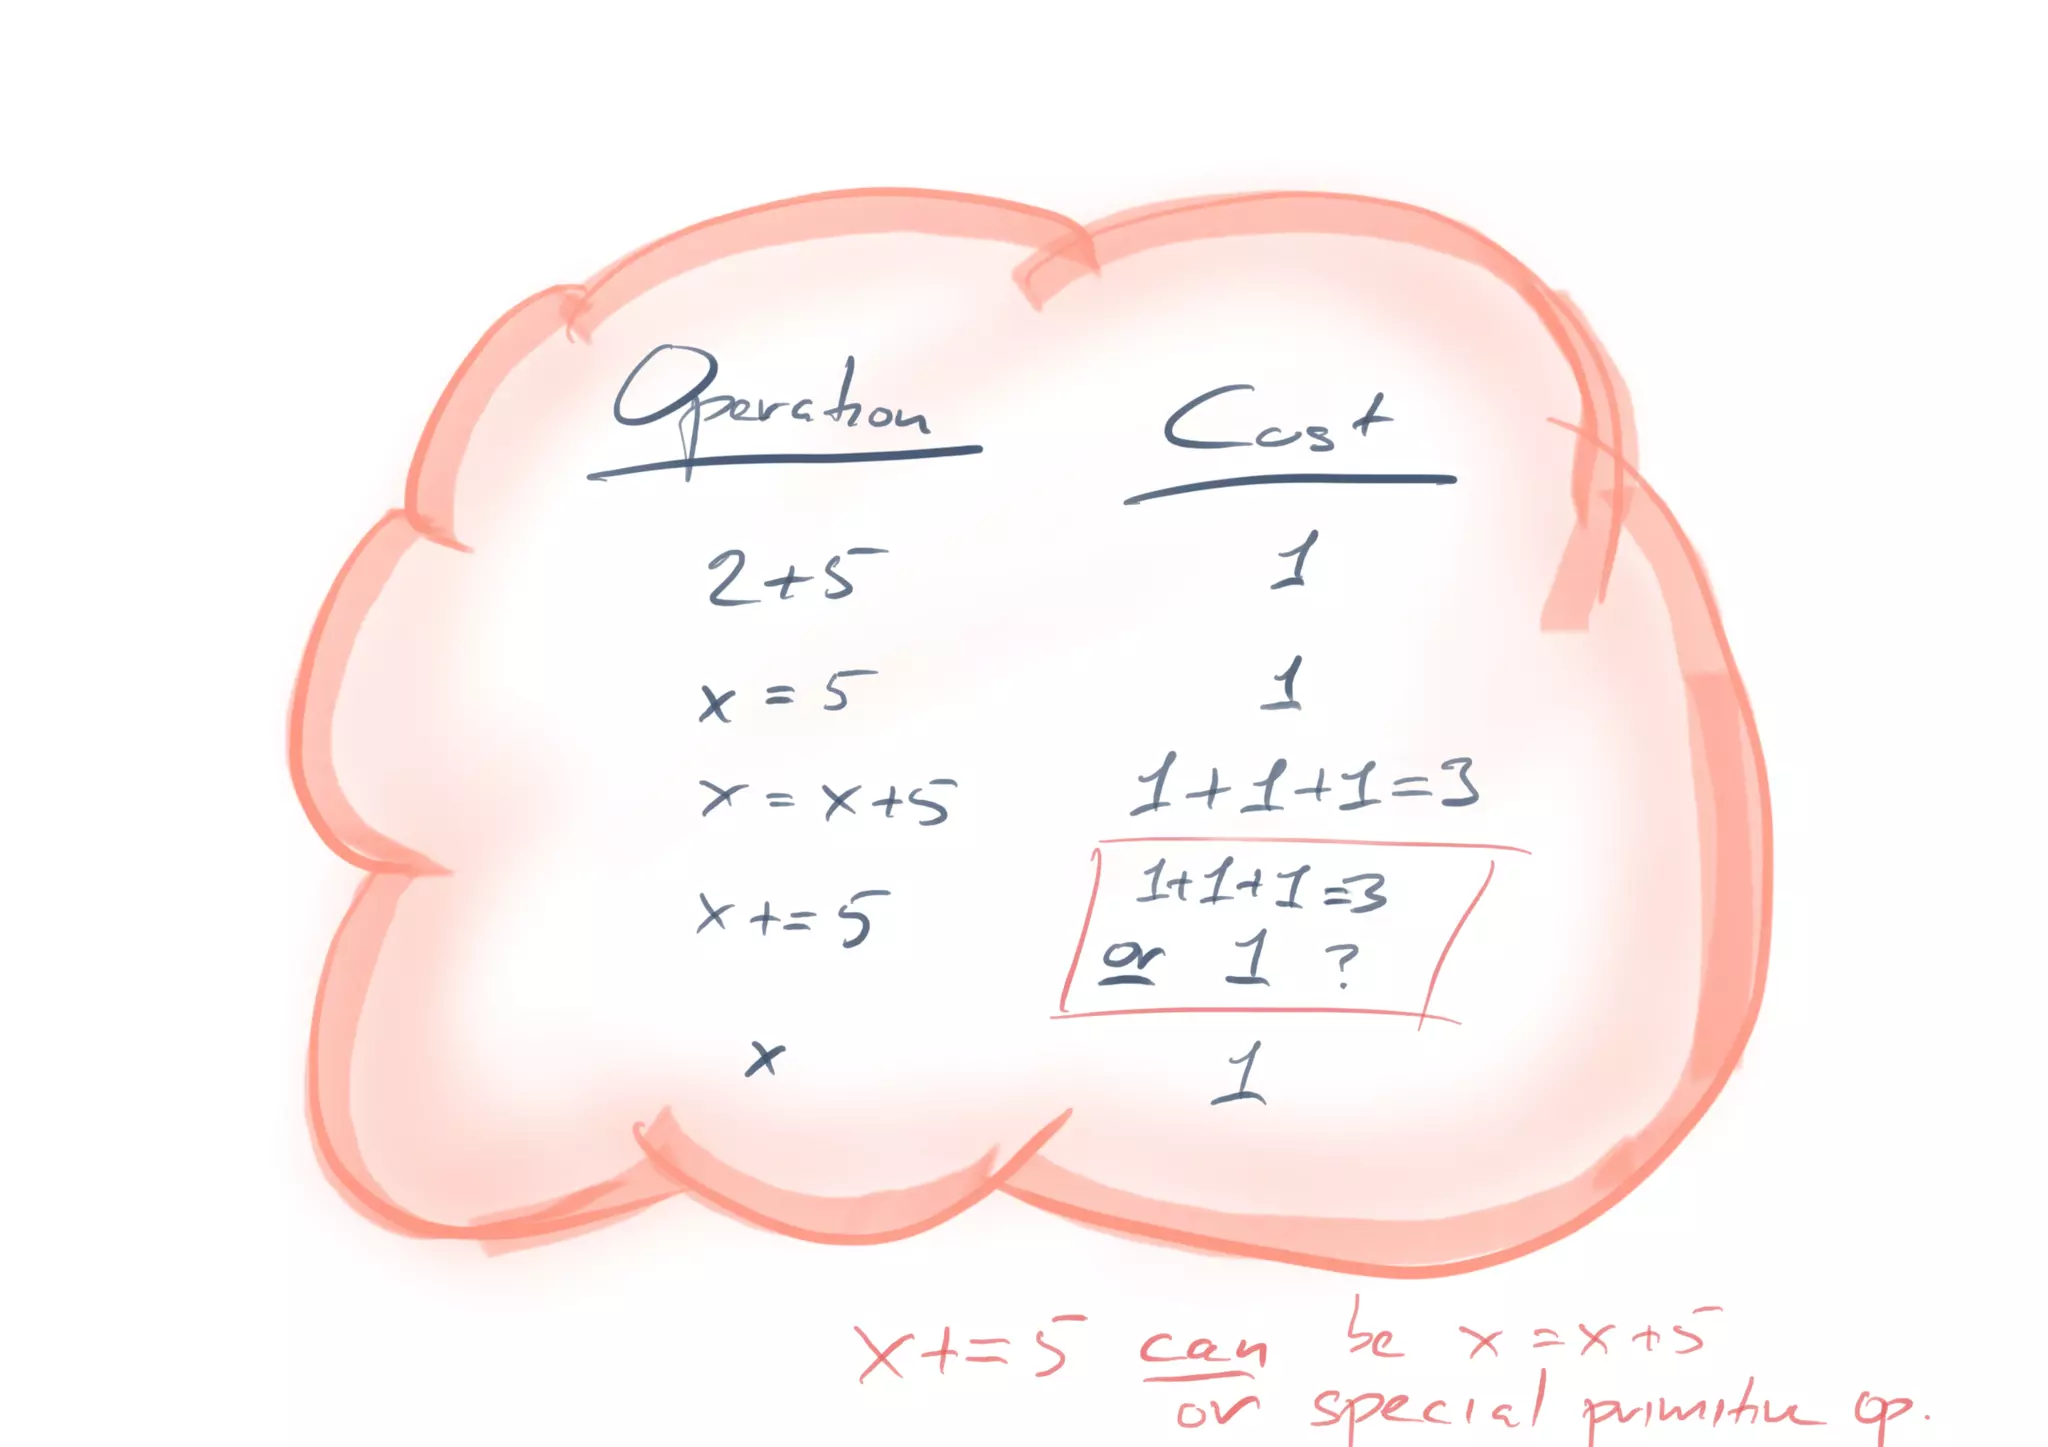 Operation Cost
2+5 1
x = 5 1
x = x+5 1+1+1=3
x += 5 1+1+1=3
or 1 ?
x 1
x+=5 can be x=x+5
or special primitive op.